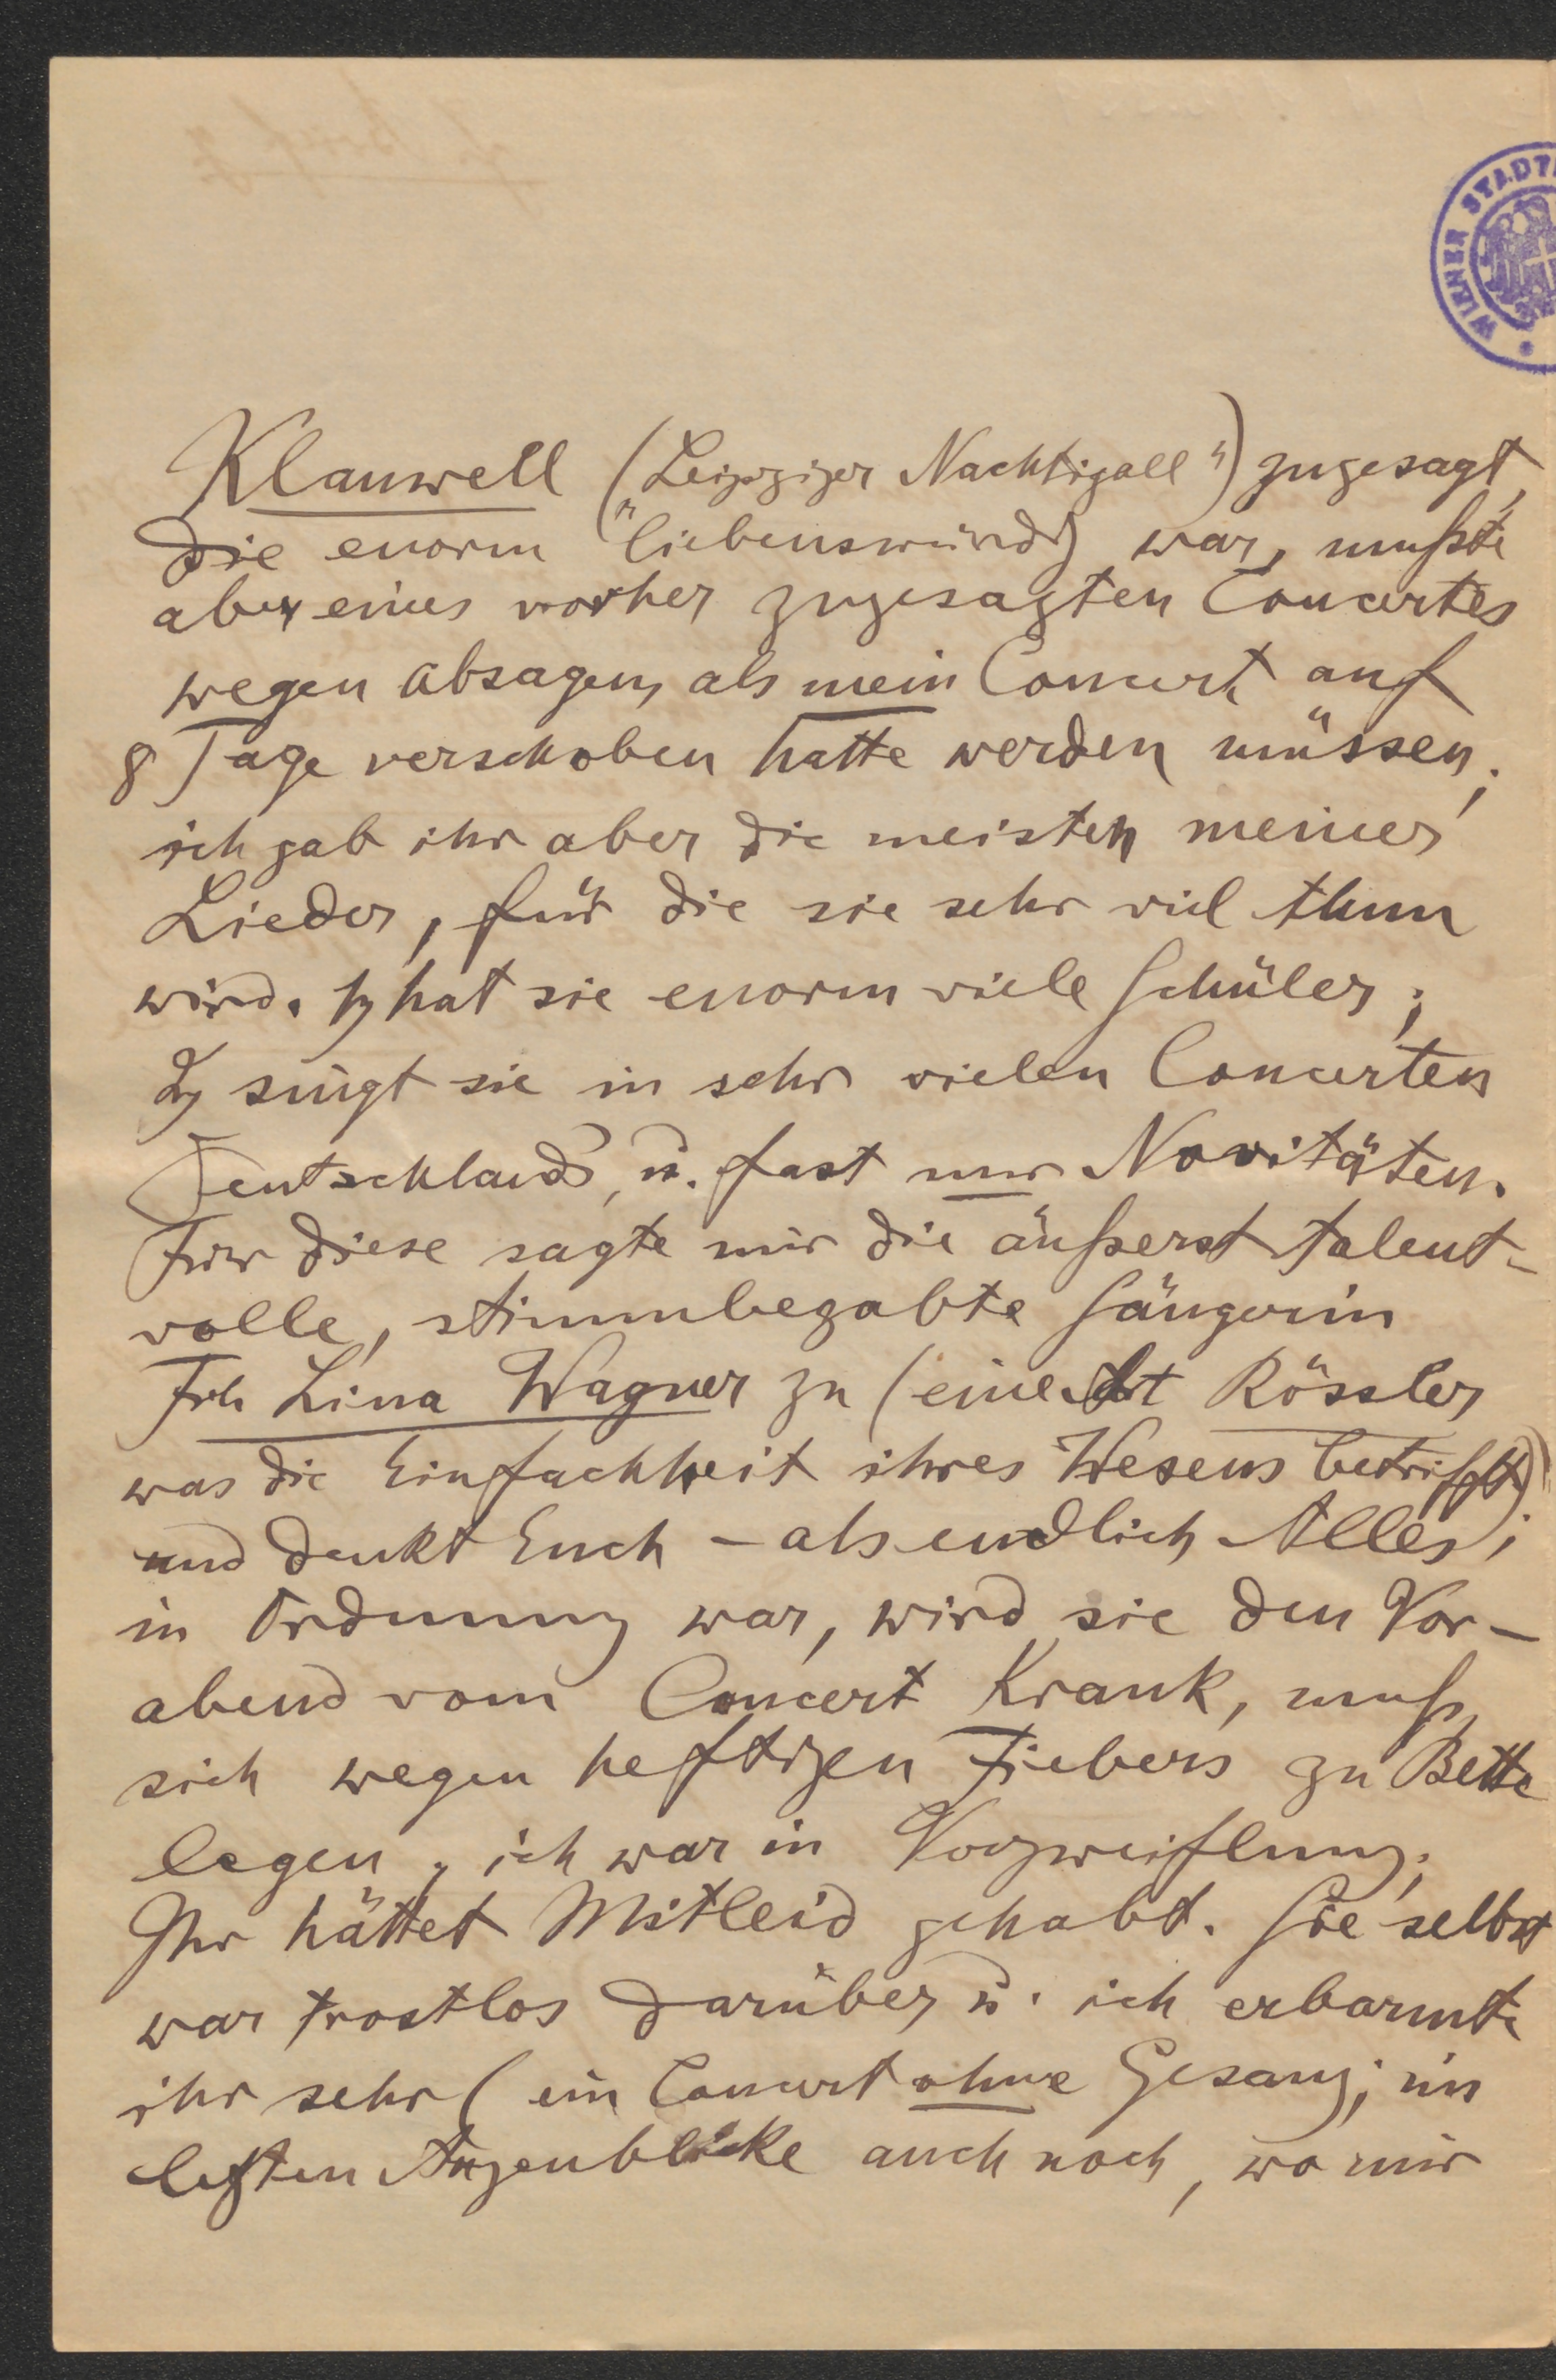 WIENER STADT
Klauwell („Leipziger Nachtigall") zugesagt,
die enorm liebenswürdig war, mußte
aber eines vorher zugesagten Concertes
wegen absagen, als mein Concert auf
8 Tage verschoben hatte werden müssen;
ich gab ihr aber die meisten meiner
Lieder, für die sie sehr viel thun
wird. 1) hat sie enorm viele Schüler;
2) singt sie in sehr vielen Concerten
Deutschlands, u. fast nur Novitäten.
Für diese sagte mir die äußerst talent-
volle, stimmbegabte Sängerin
Frl. Lina Wagner zu (eine Art Rössler
was die Einfachheit ihres Wesens betrifft)
und denkt Euch – als endlich Alles
in Ordnung war, wird sie den Vor-
abend vom Concert Krank, muß
sich wegen heftigen Fiebers zu Bette
legen; ich war in Verzweiflung;
Ihr hättet Mitleid gehabt. Sie selbst
war trostlos darüber u. ich erbarmte
ihr sehr (ein Concert ohne Gesang; im
letzten Augenblicke auch noch, wo mir